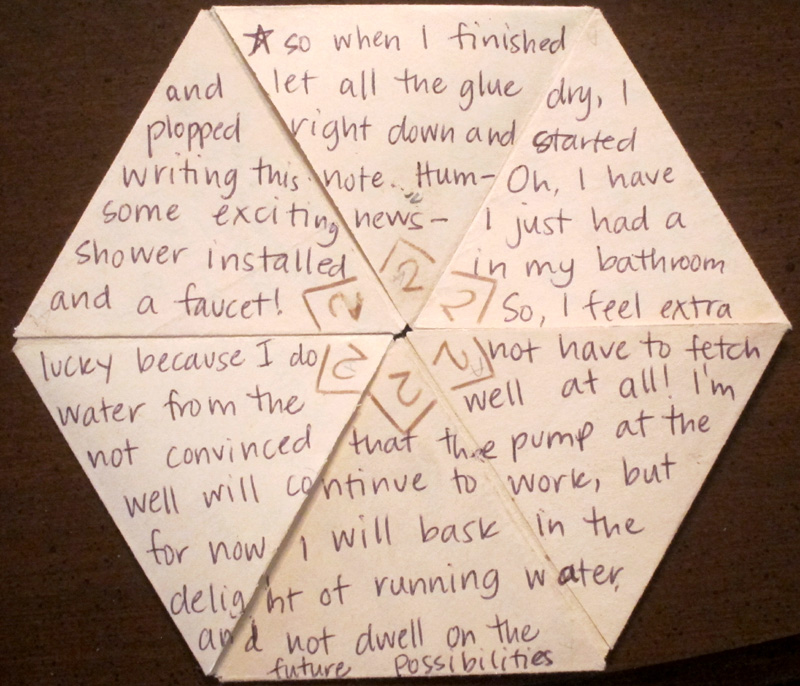 ☆ so when I finished
and let all the glue dry, I
plopped right down and started
writing this note.. Hum- Oh, I have
some exciting news- I just had a
shower installed in my bathroom
and a faucet! So, I feel extra
2 2 2
2 2 2
lucky because I do not have to fetch
water from the well at all! I'm
not convinced that the pump at the
well will continue to work, but
for now I will bask in the
delight of running water
and not dwell on the
future possibilities